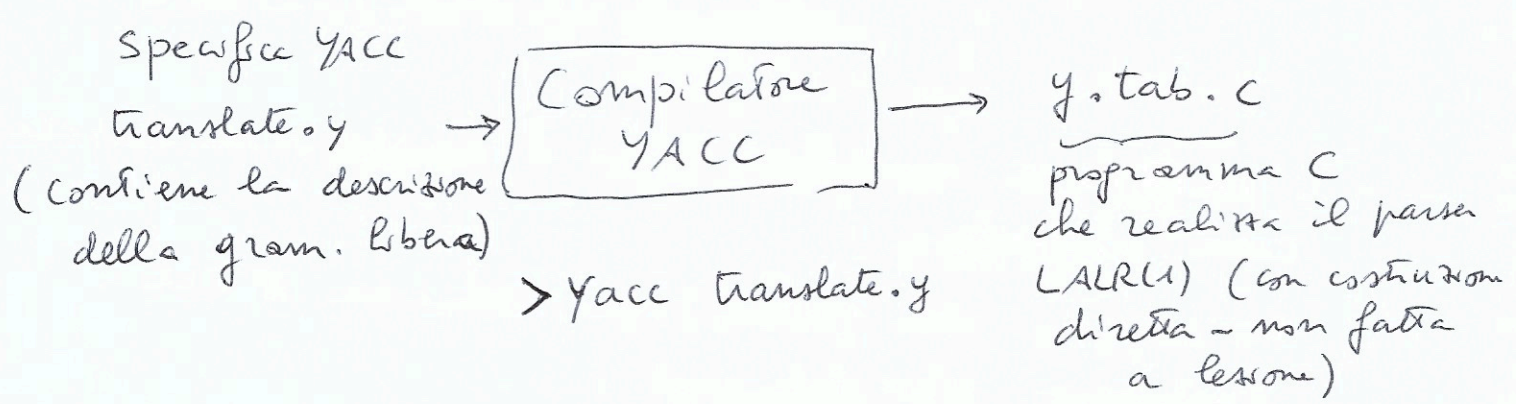 Specifica YACC
translate.y
(contiene la descrizione
della gram. libera)
Compilatore
YACC
> Yacc translate.y
y.tab.c
programma C
che realizza il parser
LALR(1) (con costruzione
diretta - non fatta
a lezione)